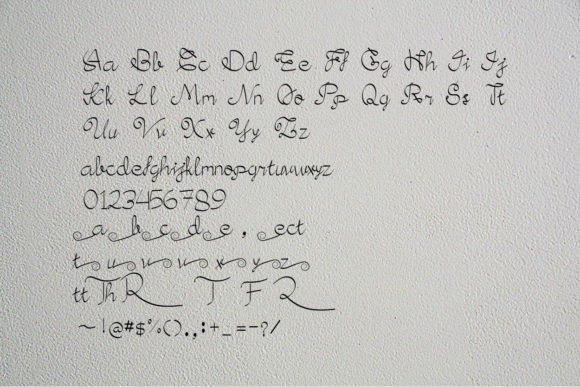 Aa Bb Cc Dd Ee Ff Gg Hh Ii Jj
Kk Ll Mm Nn Oo Pp Qq Rr Ss Tt
Uu Vv Xx Yy Zz
abcdefghijklmnopqrtuvwxyz
0123456789
a b c d e , ect
t u v w x y z
tt Th R T F R
~!@#$%().,:+_=-?/